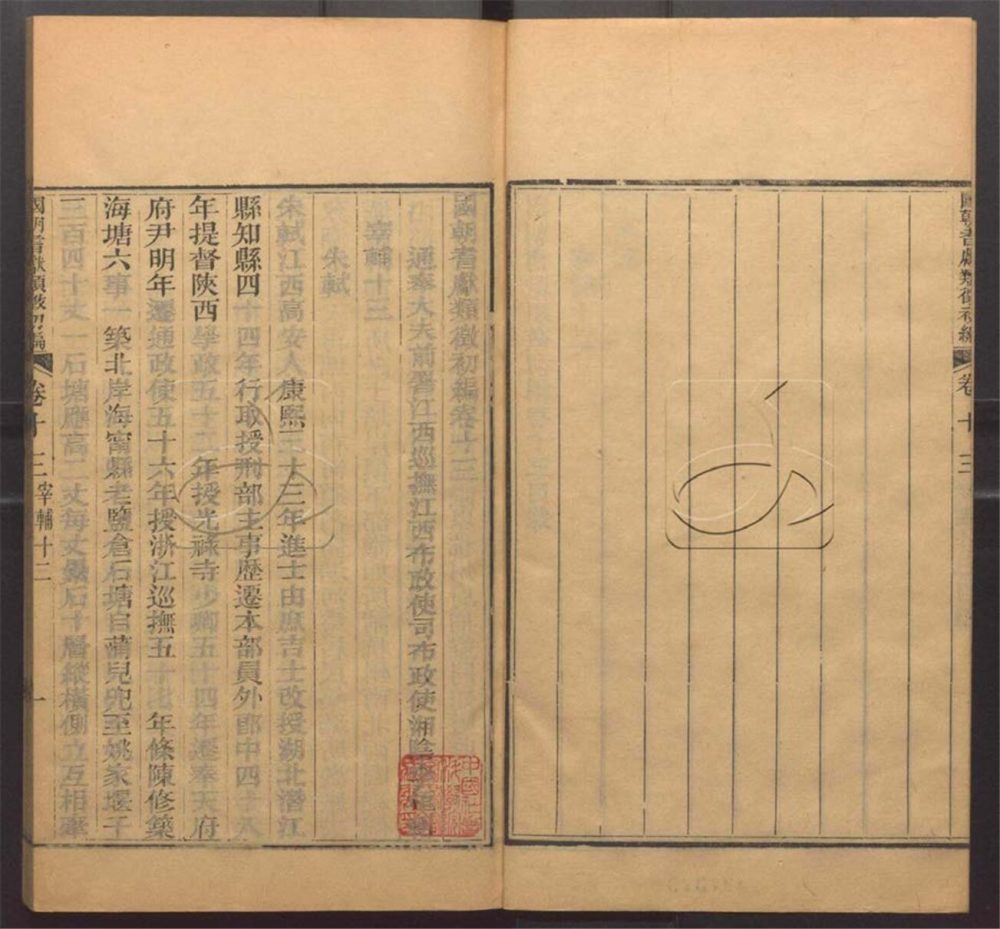 國朝耆獻類徵初編
卷十三
國朝耆獻類徵初編卷十三
通奉大夫前署江西巡撫江西布政使司布政使湘陰李
宰輔十三
朱軾
朱軾江西高安人康熙三十三年進士由庶吉士改授湖北潛江
縣知縣四十四年行取授刑部主事歷遷本部員外郎中四十八
年提督陝西學政五十二年授光祿寺少卿五十四年遷奉天府
府尹明年遷通政使五十六年授浙江巡撫五十七年條陳修築
海塘六事一築北岸海甯縣老鹽倉石塘自蒲兒兜至姚家堰千
三百四十丈一石塘應高二丈每丈疊石十層縱橫側立互相牽
國朝耆獻類徵初編
卷十三宰輔十三
一